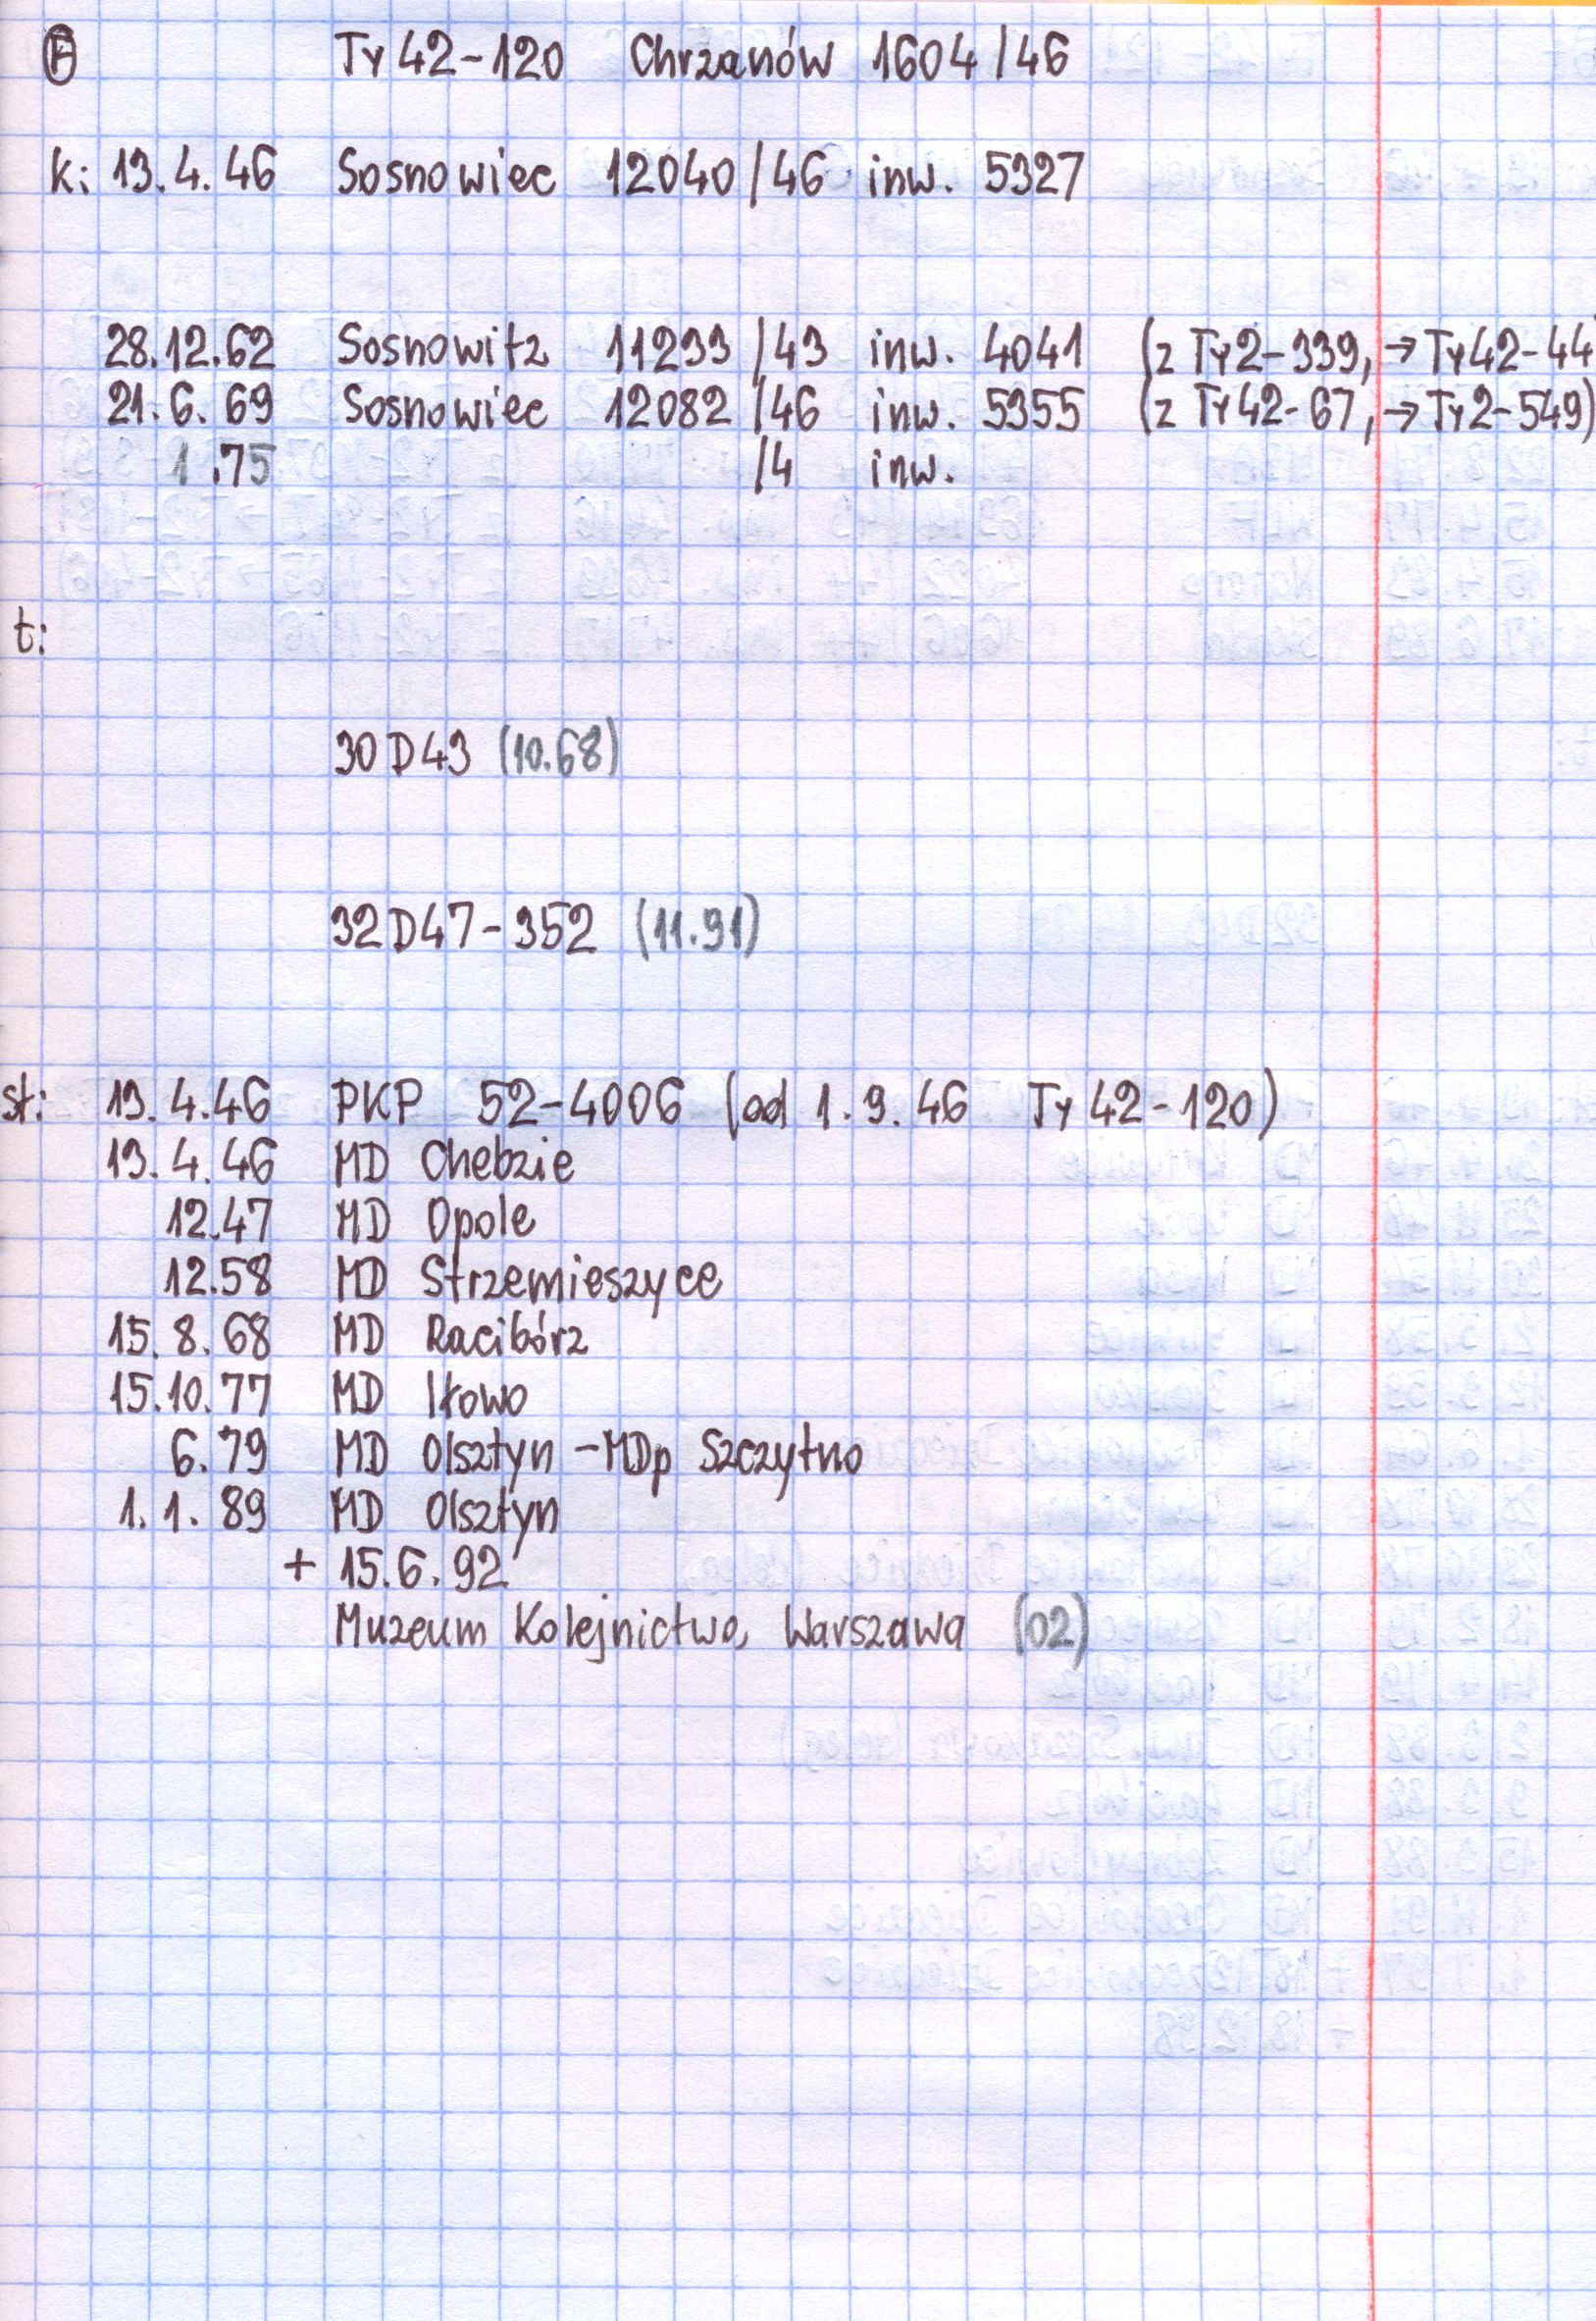 Ty42-120 Chrzanów 1604/46
k: 13.4.46 Sosnowiec 12040/46 inw. 5327
28.12.62 Sosnowitz 11233/43 inw. 4041 (z Ty2-339, → Ty42-44
21.6.69 Sosnowiec 12082/46 inw. 5355 (z Ty42-67, → Ty2-549)
1.75 /4 inw.
t:
30D43 (10.68)
32D47-352 (11.91)
st: 13.4.46 PKP 52-4006 (od 1.9.46 Ty42-120)
13.4.46 MD Chebzie
12.47 MD Opole
12.58 MD Strzemieszyce
15.8.68 MD Racibórz
15.10.77 MD Iłowo
6.79 MD Olsztyn -MDp Szczytno
1.1.89 MD Olsztyn
+ 15.6.92
Muzeum Kolejnictwa, Warszawa (02)